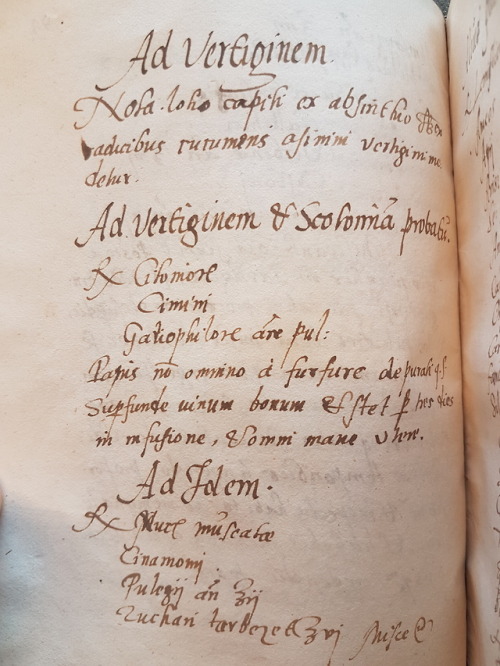 Ad Vertiginem.
Nota. lotio capitis ex absinthio
radicibus cucumeris asinini vertigini me
detur.
Ad vertiginem & Scotomiā probatū.
Rx
Cimini
Gariophilorū āne pul:
Panis nō omnino à furfure depurati q.s.
Supfunde uinum bonum & stet p tres dies
in infusione, & omni mane utere.
Ad Idem.
Rx Nucis muscatæ
Cinamomi
Pulegij an ʒij
Zuchari ʒvj Misce &